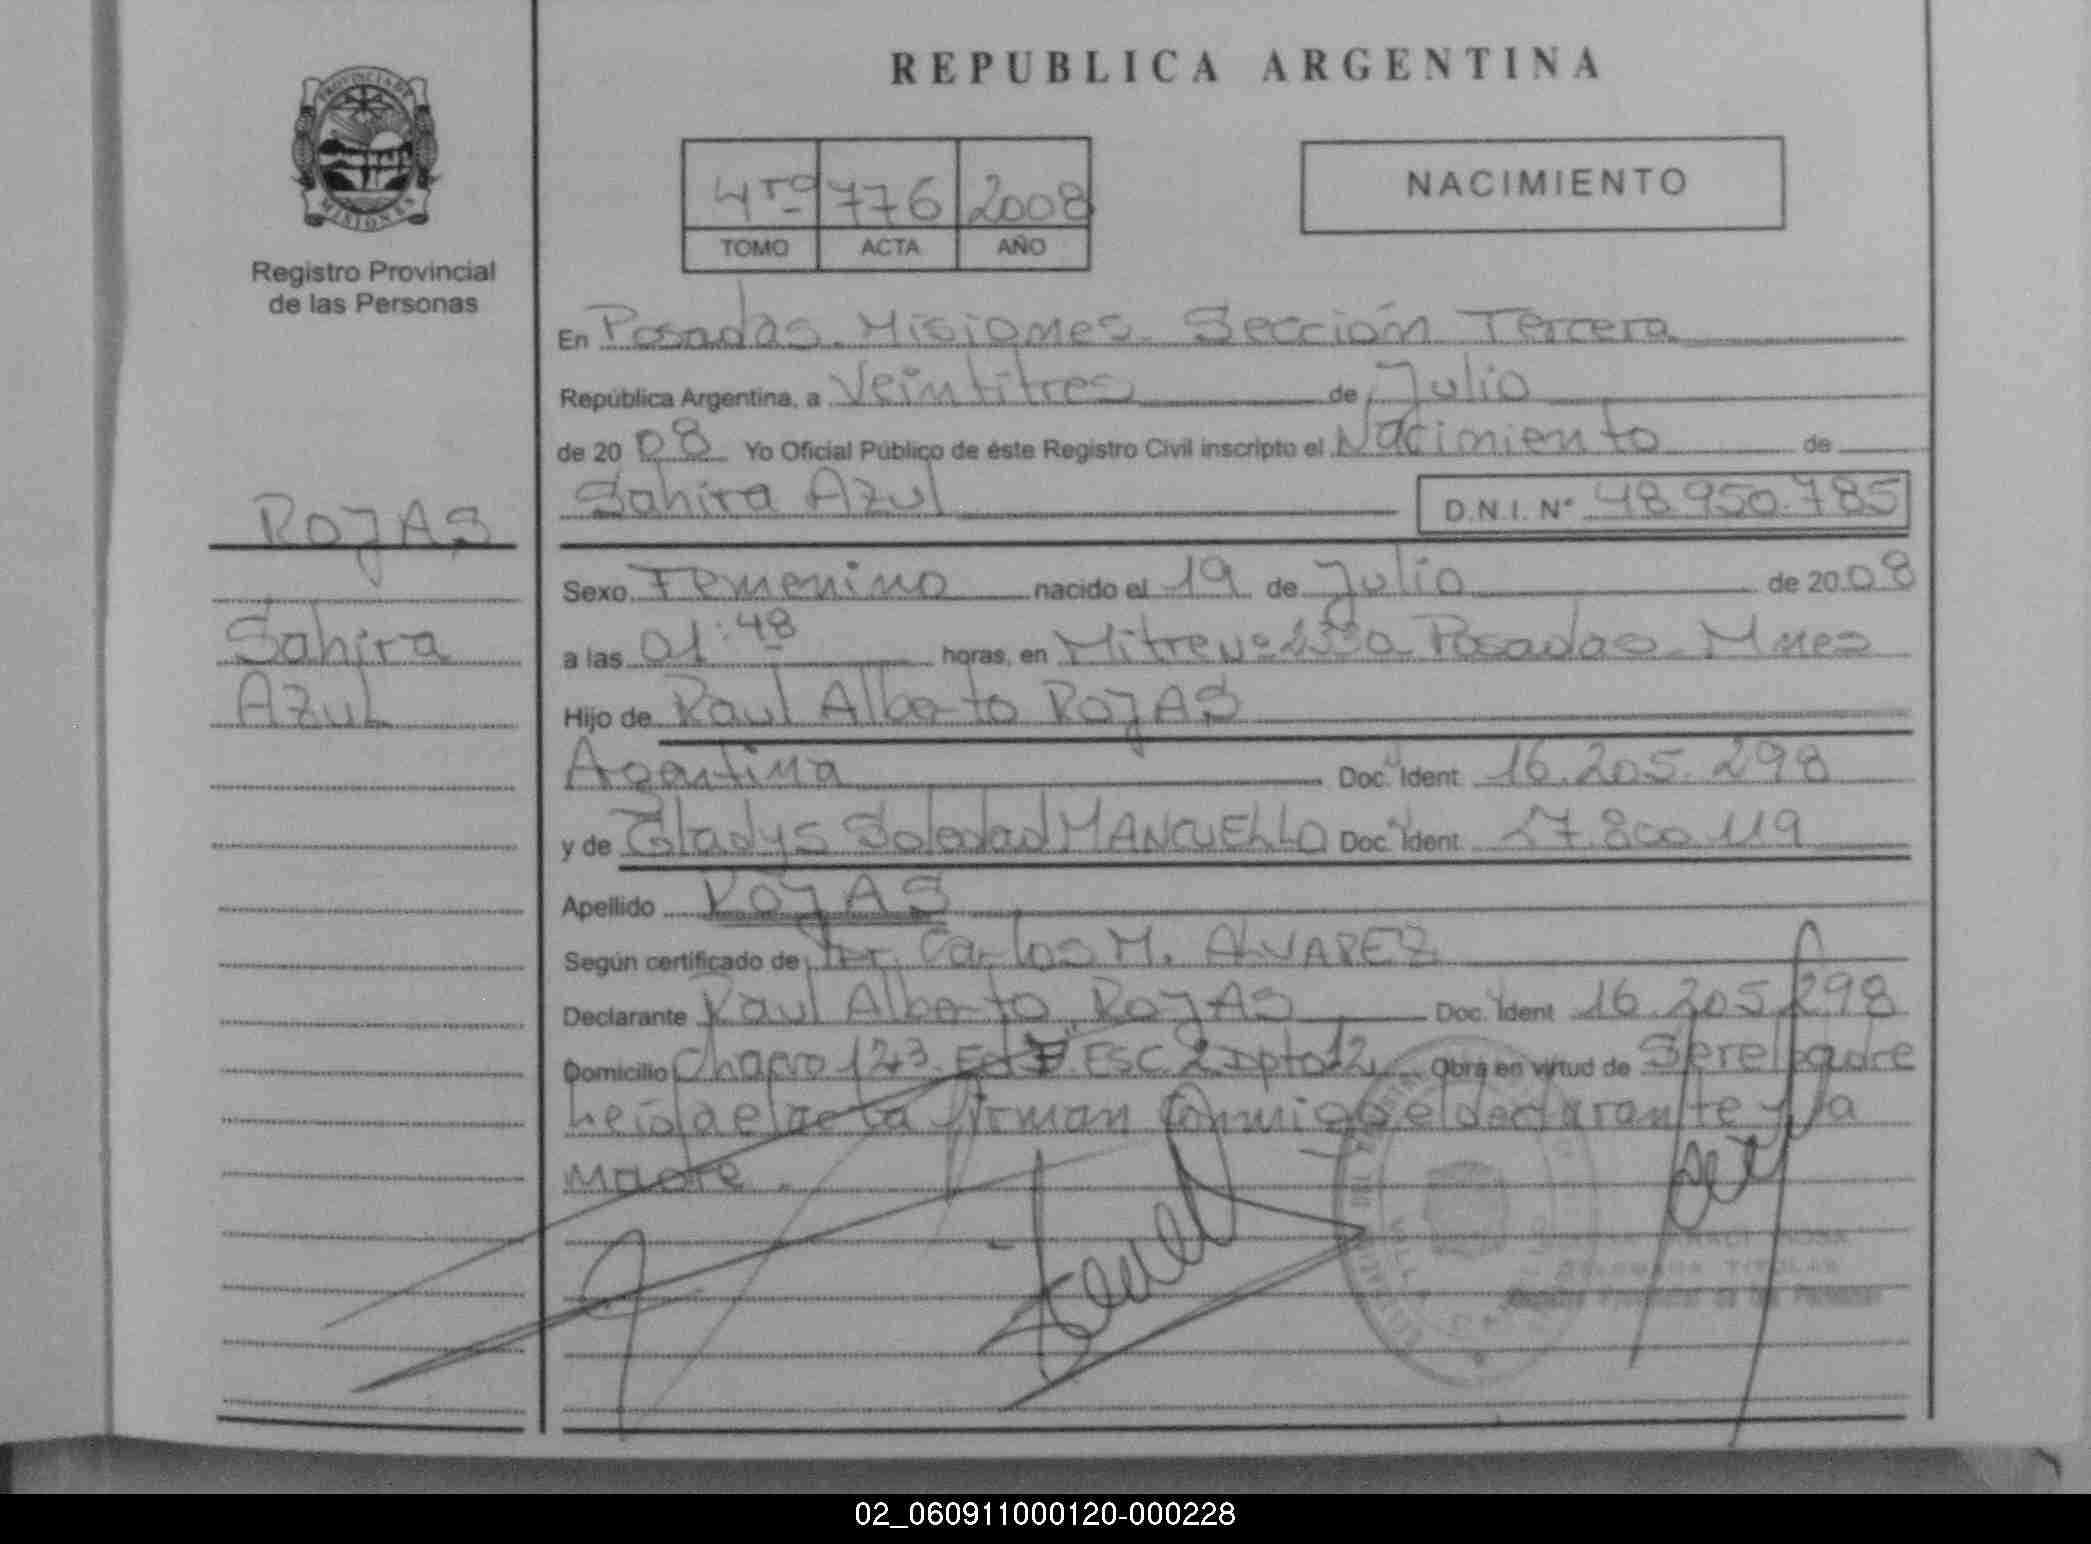 REPUBLICA ARGENTINA
PROVINCIA DE
MISIONES
Registro Provincial
de las Personas
4to 776 2008
TOMO ACTA AÑO
NACIMIENTO
En Posadas. Misiones. Sección Tercera
República Argentina, a Veintitres de Julio
de 20 08 Yo Oficial Público de éste Registro Civil inscripto el Nacimiento de
Sahira Azul D.N.I. N° 48.950.785
ROJAS
Sahira
Azul
Sexo Femenino nacido el 19 de Julio de 20 08
a las 01:48 horas, en Mitre Nº 2330 Posadas. Mnes
Hijo de Raul Alberto ROJAS
Agentina Doc. Ident. 16.205.298
y de Gladys Soledad MANCUELLO Doc. Ident. 27.800.119
Apellido ROJAS
Según certificado de Dr. Carlos M. ALVAREZ
Declarante Raul Alberto ROJAS Doc. Ident 16.205.298
Domicilio Chacro 123. Ed ESC. 2 Dpto 12 Obra en virtud de Ser el padre
Leida el acta firman conmigo el declarante y la
Madre.
DELEGADA TITULAR
Registro Provincial de las Personas
02_060911000120-000228